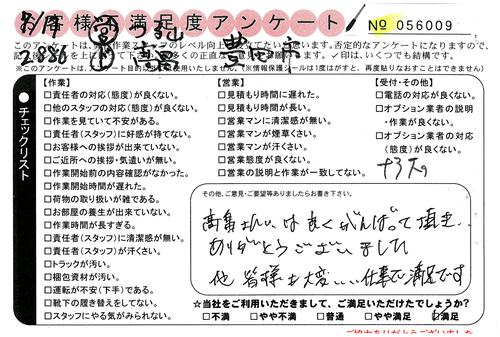 お客様不満足度アンケート
№ 056009
2886
豊田市
【作業】
□責任者の対応(態度)が良くない。
□他のスタッフの対応(態度)が良くない。
□作業を見ていて不安がある。
□責任者(スタッフ)に好感が持てない。
□お客様への挨拶が出来ていない。
□ご近所への挨拶・気遣いが無い。
□作業開始前の内容確認がなかった。
□作業開始時間が遅れた。
□荷物の取り扱いが雑である。
□お部屋の養生が出来ていない。
□作業時間が長すぎる。
□責任者(スタッフ)に清潔感が無い。
□責任者(スタッフ)が汗くさい。
□トラックが汚い。
□梱包資材が汚い。
□運転が不安(下手)である。
□靴下の履き替えをしてない。
□スタッフにやる気がみられない。
【営業】
□見積もり時間に遅れた。
□見積もり時間が長い。
□営業マンに清潔感が無い。
□営業マンが煙草くさい。
□営業マンが汗くさい。
□営業態度が良くない。
□営業の説明と作業が一致してない。
【受付・その他】
□電話の対応が良くない。
□オプション業者の説明
・作業が良くない。
□オプション業者の対応
(態度)が良くない。
● チェックリスト
その他、ご意見・ご要望等ありましたらお書き下さい。
はよくがんばって頂き…
ありがとうございました
他 皆様も大変いい仕事で満足です
☆当社をご利用いただきまして、ご満足いただけたでしょうか?
□不満 □やや不満 □普通 □やや満足 ☑満足
ご協力ありがとうございました